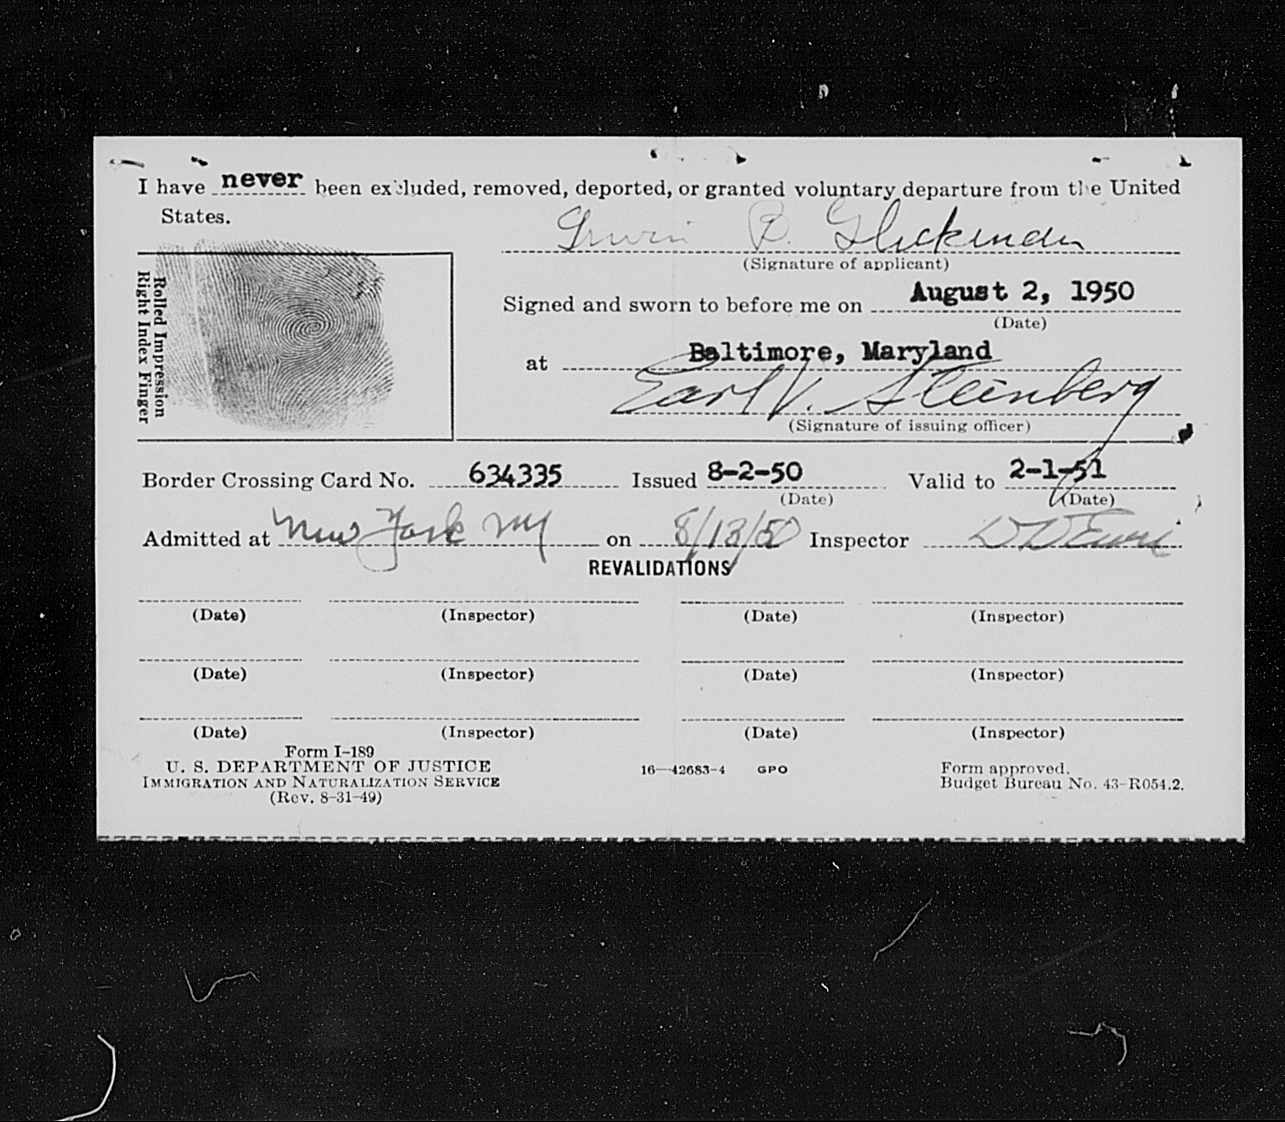 I have never been excluded, removed, deported, or granted voluntary departure from the United
States.
Irwin B. Glickman
(Signature of applicant)
Rolled Impression
Right Index Finger
Signed and sworn to before me on August 2, 1950
(Date)
at Baltimore, Maryland
Earl V. Steinberg
(Signature of issuing officer)
Border Crossing Card No. 634335 Issued 8-2-50 Valid to 2-1-51
(Date) (Date)
Admitted at New York NY on 8/13/50 Inspector
REVALIDATIONS
(Date) (Inspector) (Date) (Inspector)
(Date) (Inspector) (Date) (Inspector)
(Date) (Inspector) (Date) (Inspector)
Form I-189
U. S. DEPARTMENT OF JUSTICE
IMMIGRATION AND NATURALIZATION SERVICE
(Rev. 8-31-49)
16—42683-4 GPO
Form approved.
Budget Bureau No. 43-R054.2.